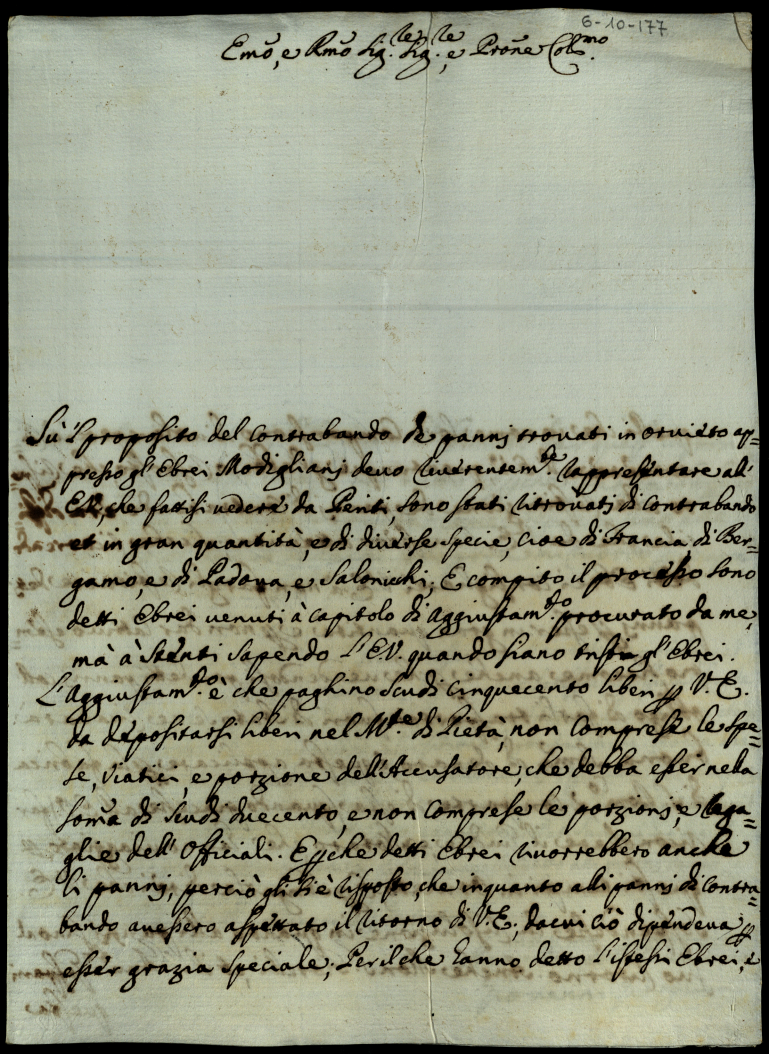 6-10-177
Emo, e Rmo Sig.re Sig.re, e Prone Colmo.
Sù 'l proposito del contrabando de pannj trovati in orvieto ap=
presso gl'Ebrei Modiglianj devo riverentem.te rappresentare all'
E.V., che fattisi vedere da Periti, sono stati ritrovatj di contrabando
et in gran quantità, e di diverse specie, cioe di Francia di Ber=
gamo, e di Padova, e Salonichi; E compito il processo sono
detti Ebrei venuti à capitolo di Aggiustam.to procurato da me,
mà à stenti sapendo l'E.V. quando siano tristi gl'Ebrei.
L'Aggiustam.to è che paghino scudi cinquecento liberi p V.E.
da depositarsi liberi nel M.te di Pietà, non comprese le spe=
se, viatici, e porzione dell'Accusatore, che debba esser nella
somā di scudi duecento, e non comprese le porzionj, e rega=
glie dell'Officiali. E pche detti Ebrei rivorrebbero anche
li pannj, perciò gli si è risposto, che inquanto alli pannj di contra=
bando avessero aspettato il ritorno di V.E., da cui ciò dipendeva p
esser grazia speciale; Per il che hanno detto l'istessi Ebrei, e